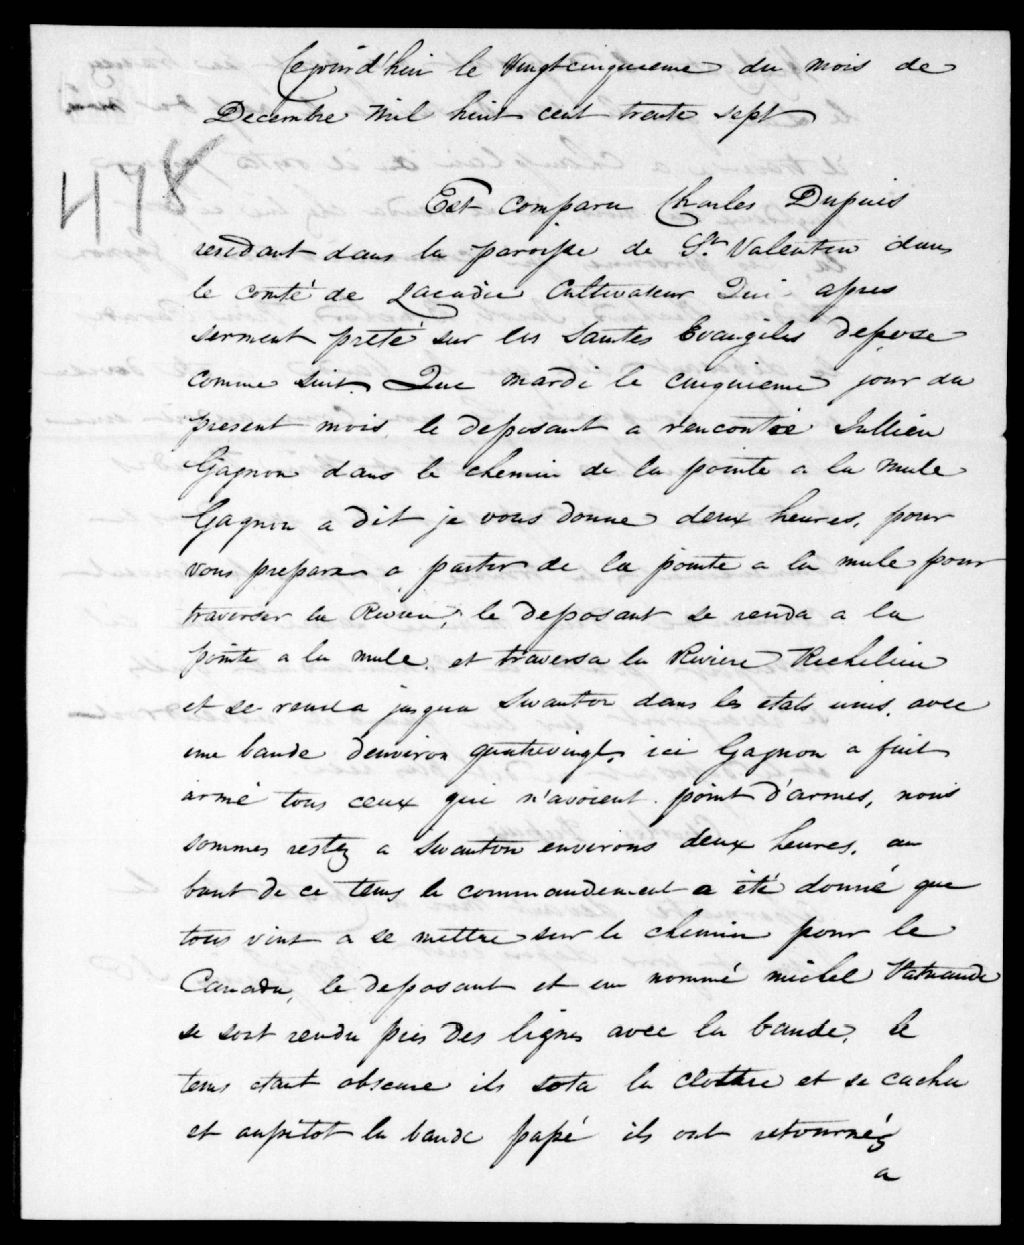 Cejourd'hui le Vingtcinquieme du mois de
Decembre Mil huit cent trente sept
478
Est comparu Charles Dupuis
residant dans la paroisse de St Valentin dans
le comté de Lacadie Cultivateur Qui apres
serment preté sur les Saintes Evangiles depose
comme suit Que mardi le cinquieme jour du
present mois le deposant a rencontré Jullien
Gagnon dans le chemin de la pointe a la mule
Gagnon a dit je vous donne deux heures, pour
vous preparer a partir de la pointe a la mule pour
traverser la Riviere, le deposant se renda a la
pointe a la mule, et traversa la Riviere Richelieu
et se renda jusqua Swanton dans les etats unis, avec
une bande denviron quatrevingt, ici Gagnon a fait
armé tous ceux qui n'avoient point d'armes, nous
sommes restez a Swanton environs deux heures, au
bout de ce tems le commandement a été donné que
tous vint a se mettre sur le chemin pour le
Canada, le deposant et un nommé michel
se sont rendu pres des lignes avec la bande, le
tems etant obscure ils sota la clottre et se cacha
et aussitot la bande passé ils ont retournéz
a